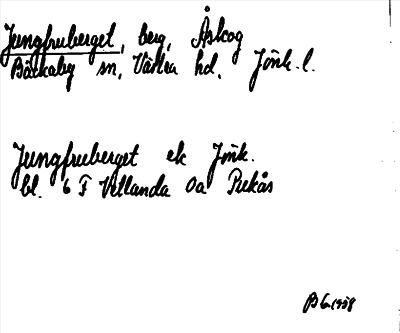 Jungfruberget, berg, Åskog
Bäckaby sn, Västra hd, Jönk. l.
Jungfruberget ek Jönk.
bl. 6 F Vetlanda 0a Pukås